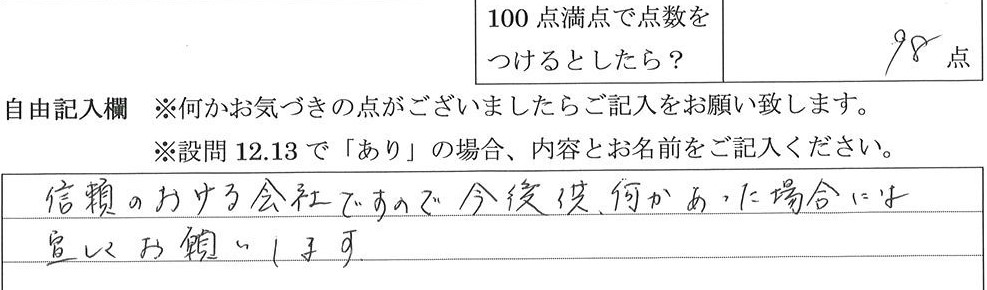 100 点満点で点数を
つけるとしたら？
98 点
自由記入欄 ※何かお気づきの点がございましたらご記入をお願い致します。
※設問 12.13 で「あり」の場合、内容とお名前をご記入ください。
信頼のおける会社ですので今後、何かあった場合には
宜しくお願いします